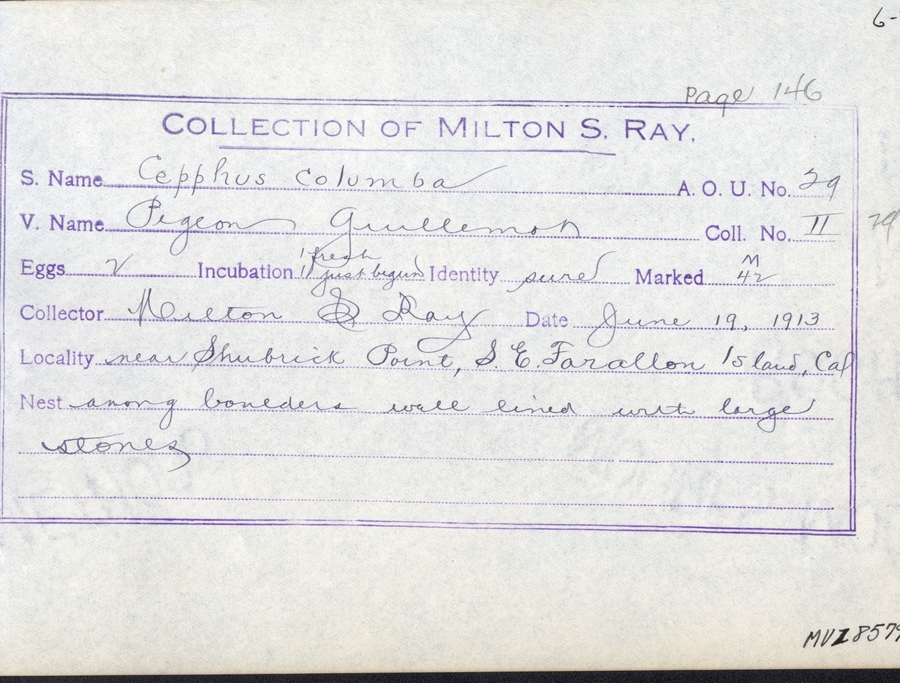 6-
Page 146
COLLECTION OF MILTON S. RAY.
S. Name Cepphus columba A. O. U. No. 29
V. Name Pigeon Guillemot Coll. No. II
Eggs 2 Incubation 1 fresh 1 just begun Identity sure Marked M 42
Collector Milton S Ray Date June 19, 1913
Locality near Shubrick Point, S. E. Farallon Island, Cal
Nest among boulders well lined with large
stones
MVZ 8579